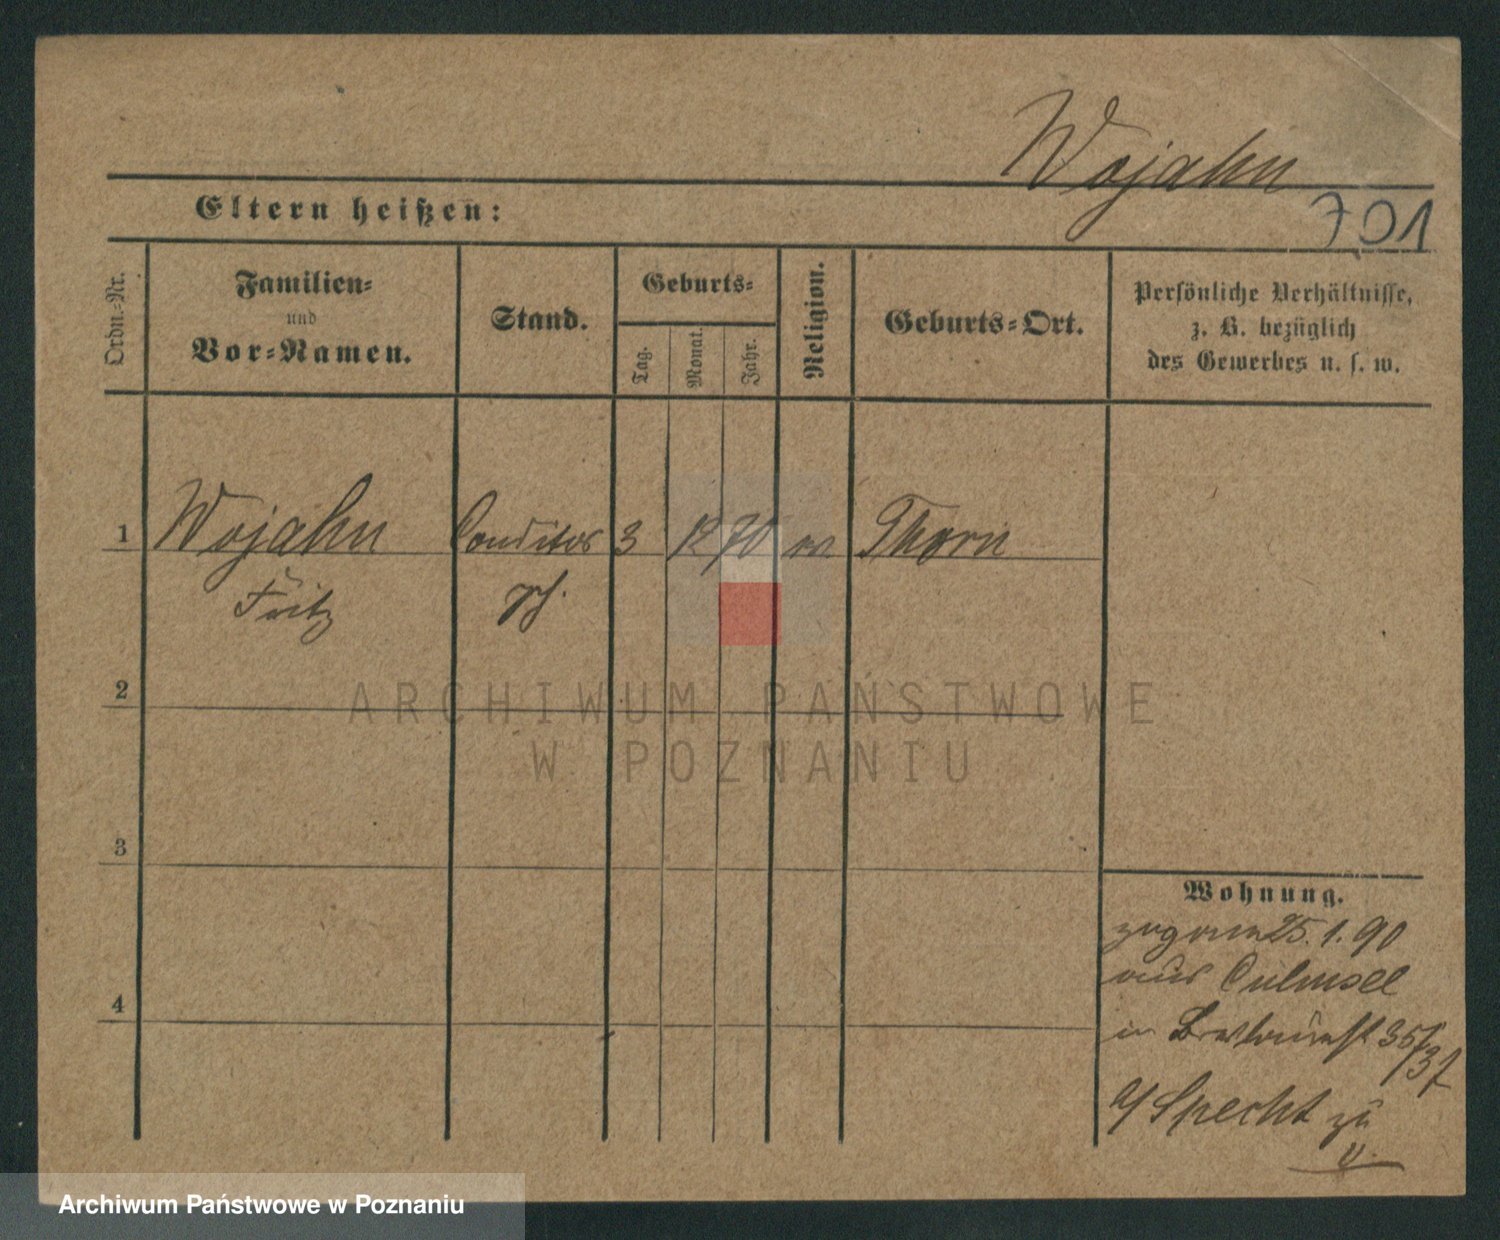 Wojahn
701
Eltern heißen:
Ordn.-Nr.
Familien-
und
Vor-Namen.
Stand.
Geburts-
Tag.
Monat.
Jahr.
Religion.
Geburts-Ort.
Persönliche Verhältnisse,
z. B. bezüglich
des Gewerbes u. s. w.
1 Wojahn Conditor 3 12 70 Thorn
Fritz
2
ARCHIWUM PAŃSTWOWE
W POZNANIU
3
4
Wohnung.
25. 1. 90
aus Culmsee
in 35/37
Specht zu
Archiwum Państwowe w Poznaniu